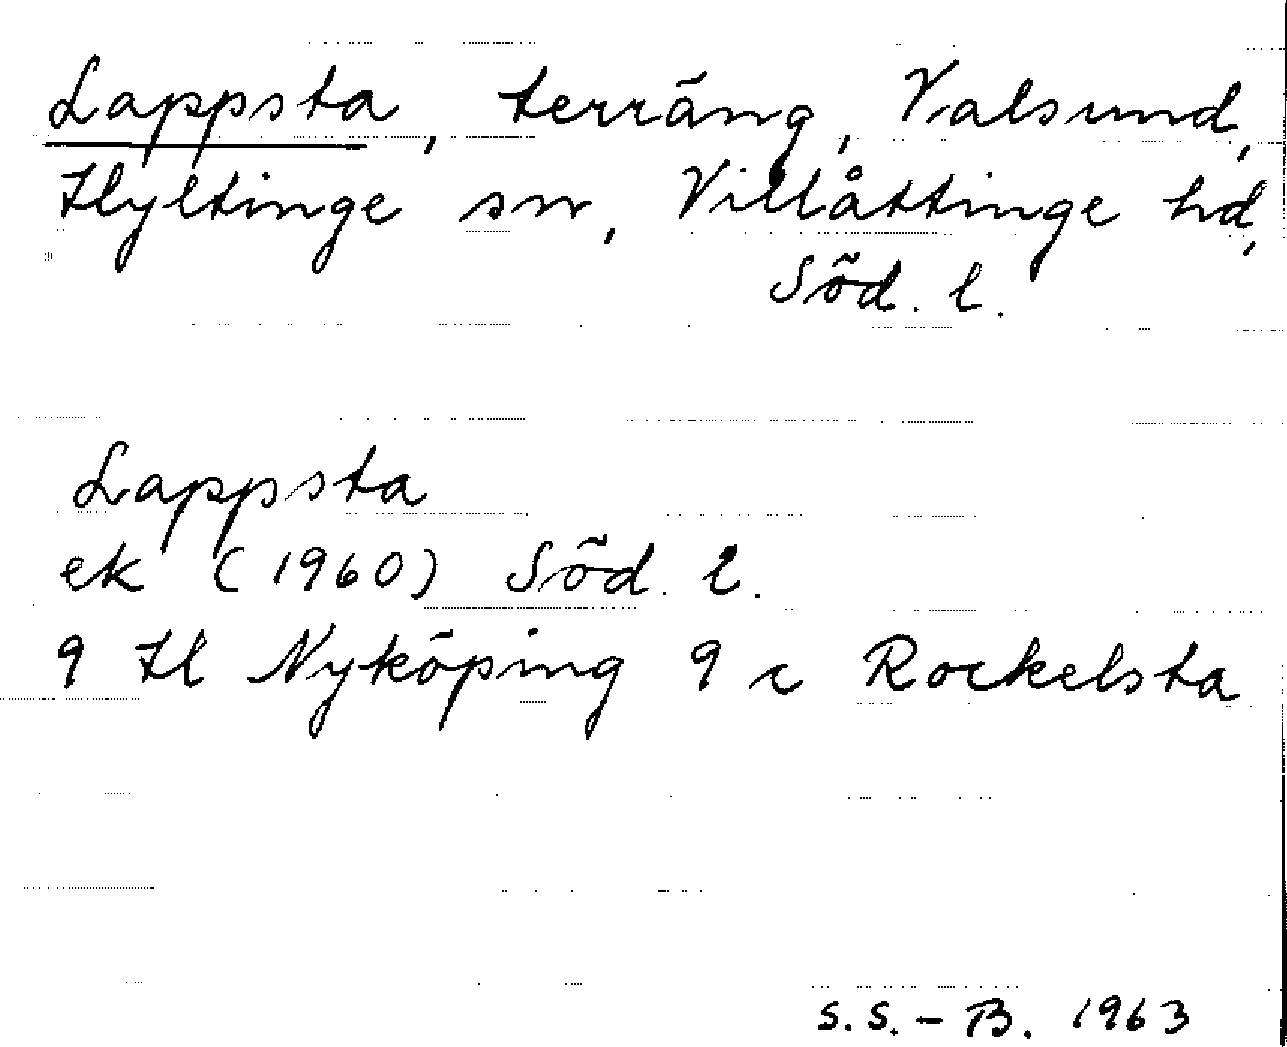 Lappsta, terräng, Valsund,
Hyltinge sn, Villåttinge hd,
Söd. l.
Lappsta
ek (1960) Söd. l.
9 H Nyköping 9 c Rockelsta
S.S. - B. 1963